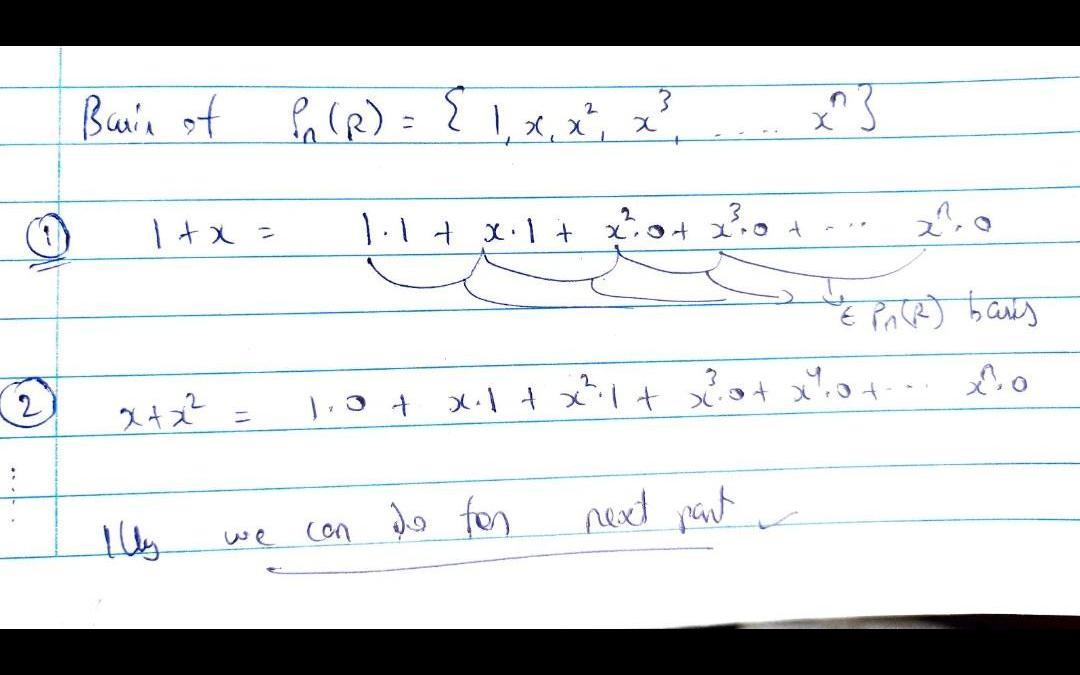 Basis of Pn(R) = { 1, x, x², x³, ..... xⁿ }
① 1 + x = 1·1 + x·1 + x²·0 + x³·0 + ... xⁿ·0
∈ Pn(R) basis
② x + x² = 1·0 + x·1 + x²·1 + x³·0 + x⁴·0 + ... xⁿ·0
⋮
|||ly we can do for next part ✓